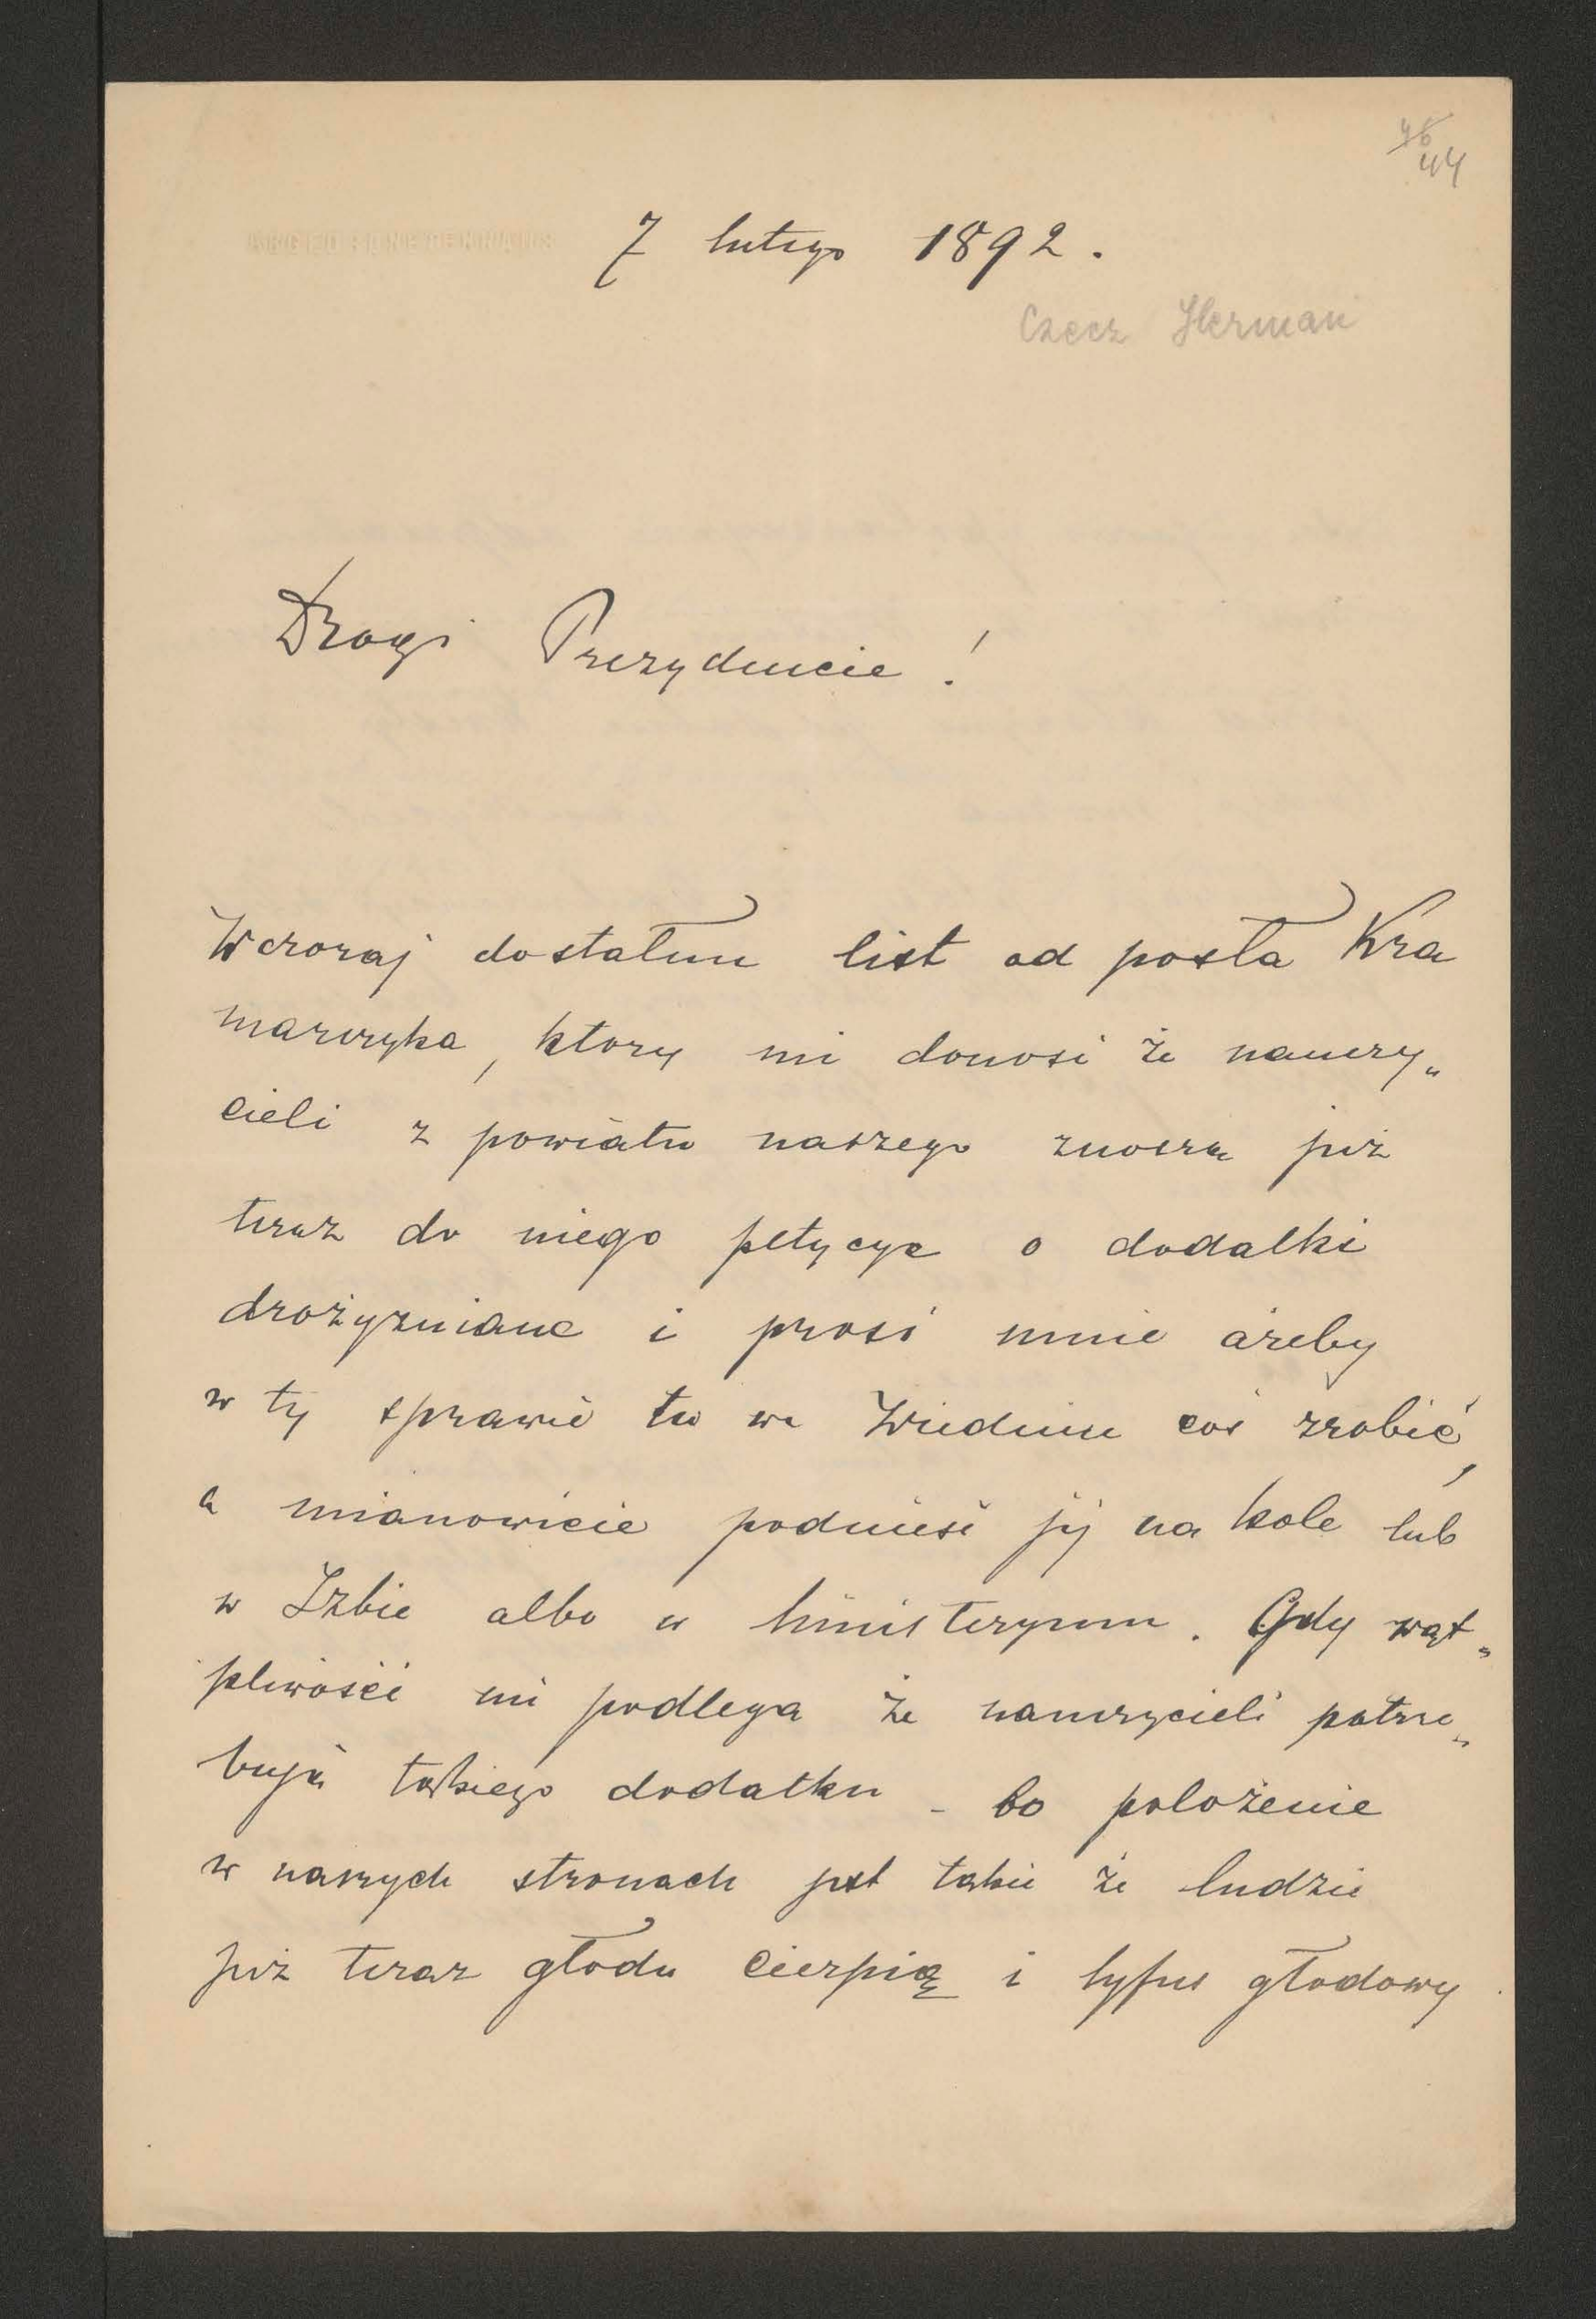 44
7 lutego 1892.
Czecz Herman
Drogi Prezydencie!
Wczoraj dostałem list od posła Kra
marczyka, ktory mi donosi że nauczy„
cieli z powiatu naszego znoszą już
teraz do niego petycye o dodatki
drożyzniane i prosi mnie ażeby
w tej sprawie tu we Wiedniu coś zrobić,
a mianowicie podnieść ją na kole lub
w Izbie albo w ministeryum. Gdy wąt„
pliwości nie podlega że nauczycieli potrze„
bują takiego dodatku - bo położenie
w naszych stronach jest takie że ludzie
już teraz głodu cierpią i tyfus głodowy